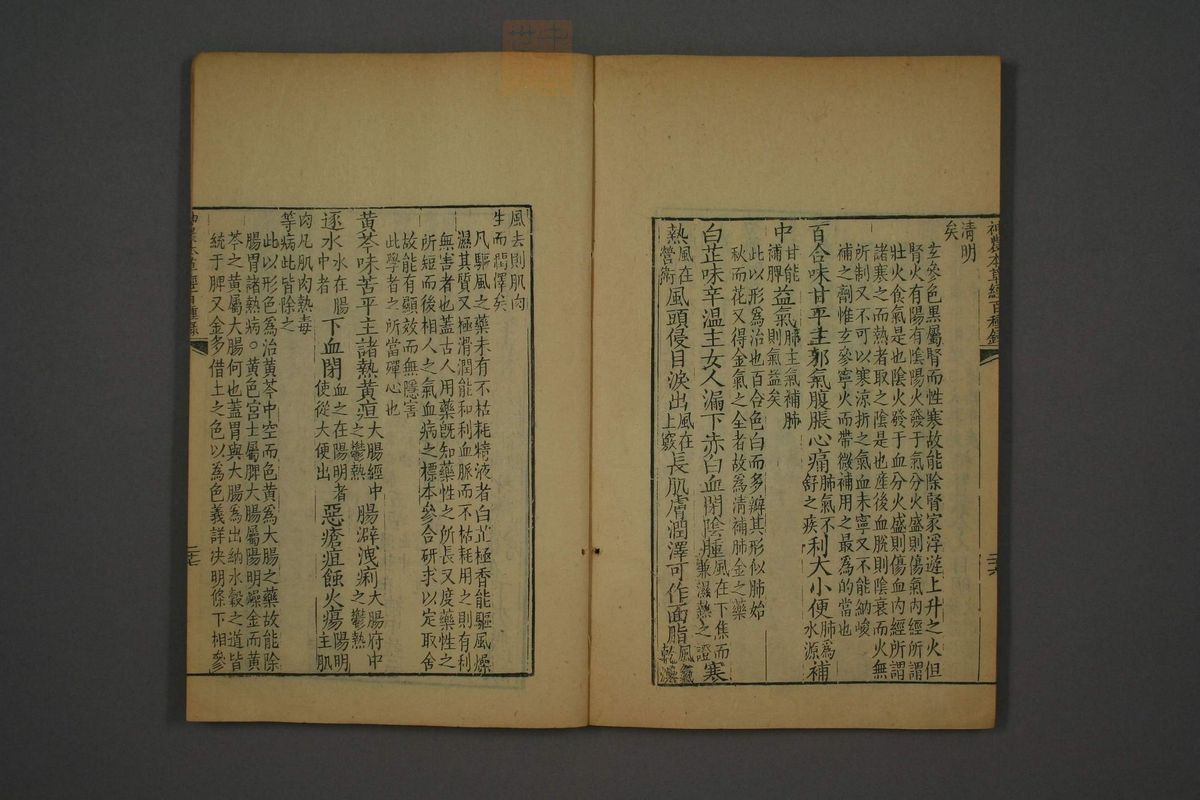 神農本草經百種錄
清明
矣
玄參色黑屬腎而性寒故能除腎家浮遊上升之火但
腎火有陽有陰陽火發于氣分火盛則傷氣內經所謂
壯火食氣是也陰火發于血分火盛則傷血內經所謂
諸寒之而熱者取之陰是也產後血脫則陰衰而火無
所制又不可以寒涼折之氣血未寧又不能納峻
補之劑惟玄參寧火而帶微補用之最為的當也
百合味甘平主邪氣腹脹心痛肺氣不舒之疾利大小便肺爲水源補
中甘能補脾益氣肺主氣補肺則氣益矣
此以形爲治也百合色白而多瓣其形似肺始
秋而花又得金氣之全者故爲清補肺金之藥
白芷味辛溫主女人漏下赤白血閉陰腫風在下焦而兼濕熱之證寒
熱風在營衛風頭侵目淚出風在上竅長肌膚潤澤可作面脂風氣乾濕
二十六
風去則肌肉
生而潤澤矣
凡驅風之藥未有不枯耗精液者白芷極香能驅風燥
濕其質又極滑潤能和利血脈而不枯耗用之則有利
無害者也蓋古人用藥既知藥性之所長又度藥性之
所短而後相人之氣血病之標本參合研求以定取舍
故能有顯效而無隱害
此學者之所當殫心也
黃芩味苦平主諸熱黃疸大腸經中之鬱熱腸澼洩痢大腸府中之鬱熱
逐水水在腸中者下血閉血之在陽明者使從大便出惡瘡疽蝕火瘍陽明主肌
肉凡肌肉熱毒
等病此皆除之
此以形色爲治黃芩中空而色黃爲大腸之藥故能除
腸胃諸熱病。黃色宮土屬脾大腸屬陽明燥金而黃
芩之黃屬大腸何也蓋胃與大腸爲出納水穀之道皆
統于脾又金多借土之色以爲色義詳決明條下相參
神農本草經百種錄
二十七